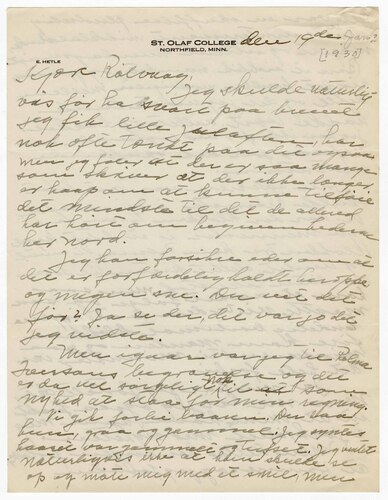 E. HETLE
ST. OLAF COLLEGE
NORTHFIELD, MINN.
den 19de Jan?
[1930]
Kjære Rölvaag,
Jeg skulde naturlig
vis for ha svart paa brevet
jeg fik lille Julaften har
nok ofte tænkt paa det ogsaa
men eg föler at der er saa mange
som skriver at der ikke længer
er haap om at kunne tilföie
det mindste til det de allered
har hört om begivenhederne
her nord.
Jeg kan forsikre eder om at
det er forfærdelig koldt heroppe
og megen sne. Du vet det
för? Ja se der, det var jo det
jeg vidste.
Men igaar var jeg til Palma
begravelse og det
er da vel sörgelig nok som
nyhed at slaa for min regning.
Vi gik forbi baaren. Der laa
hun, graa og gammel. Jeg syntes
haaret var og tufset. Jeg ventet
naturligvis ikke at hun skulde se
op og möte mig med et smil, men